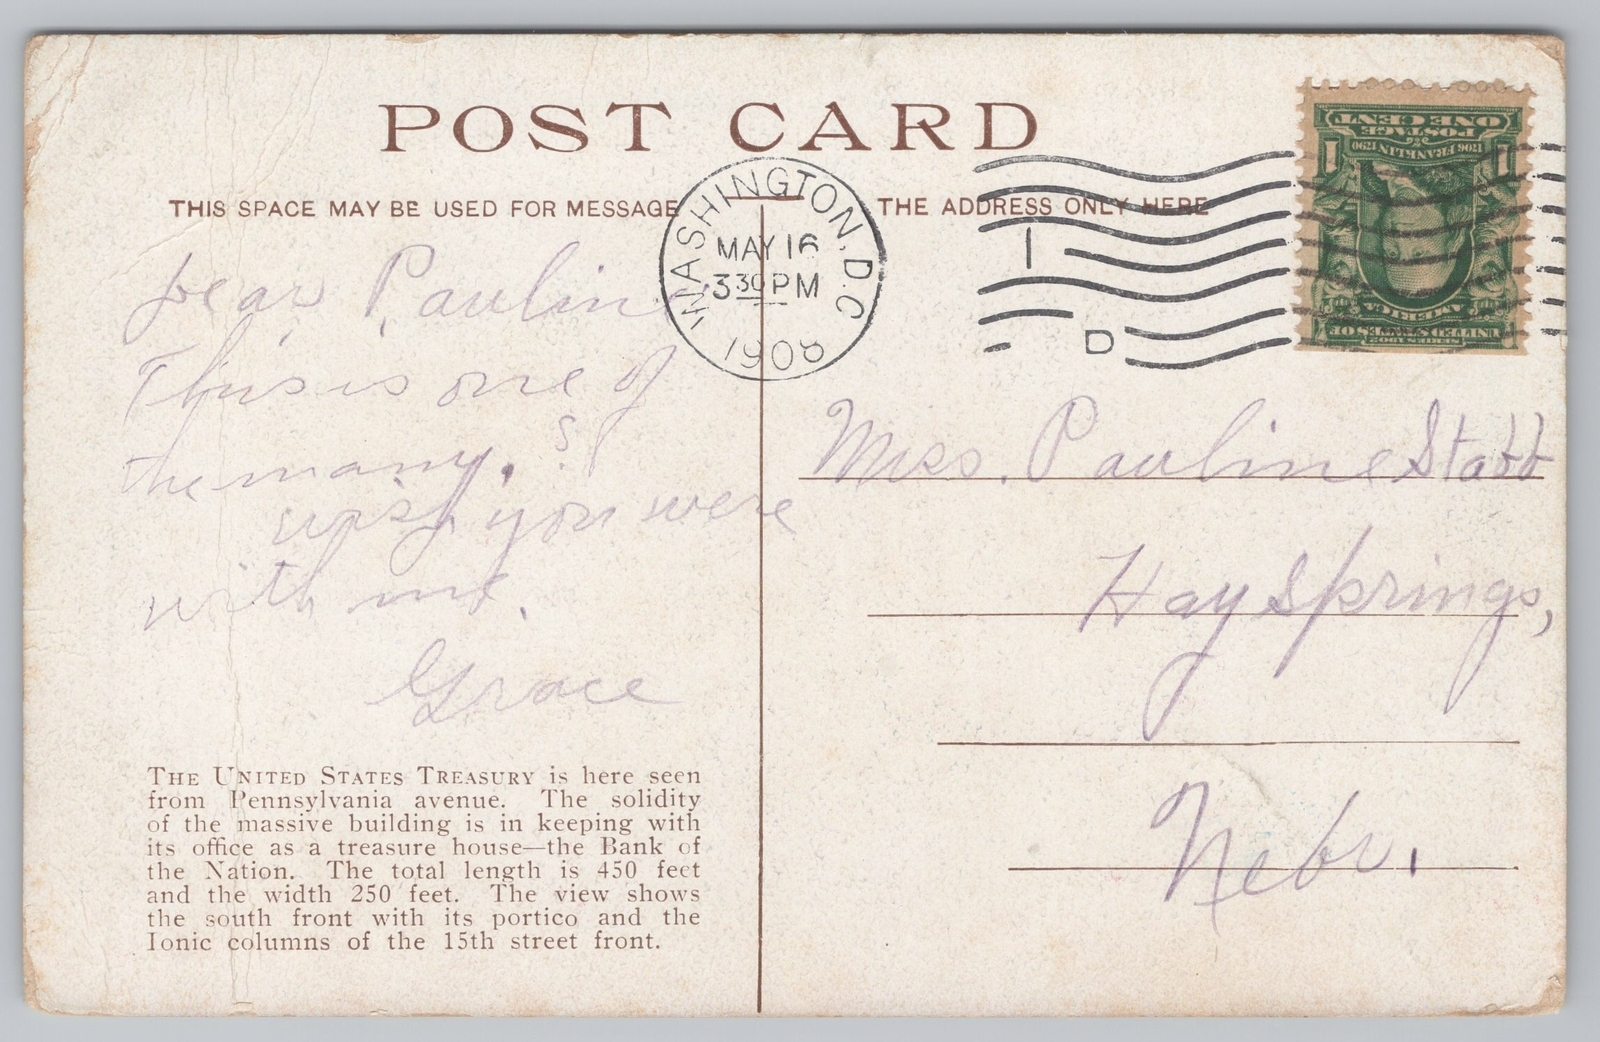 POST CARD
THIS SPACE MAY BE USED FOR MESSAGE
THE ADDRESS ONLY HERE
WASHINGTON. D.C.
MAY 16
3 30 PM
1908
1
D
SERIES 1902
UNITED STATES OF
AMERICA
1706 FRANKLIN 1790
POSTAGE
ONE CENT
Dear Pauline
This is one of
the many.
wish you were
with me.
Grace
Miss. Pauline Stabb
Hay Springs,
Nebr.
THE UNITED STATES TREASURY is here seen
from Pennsylvania avenue. The solidity
of the massive building is in keeping with
its office as a treasure house—the Bank of
the Nation. The total length is 450 feet
and the width 250 feet. The view shows
the south front with its portico and the
Ionic columns of the 15th street front.